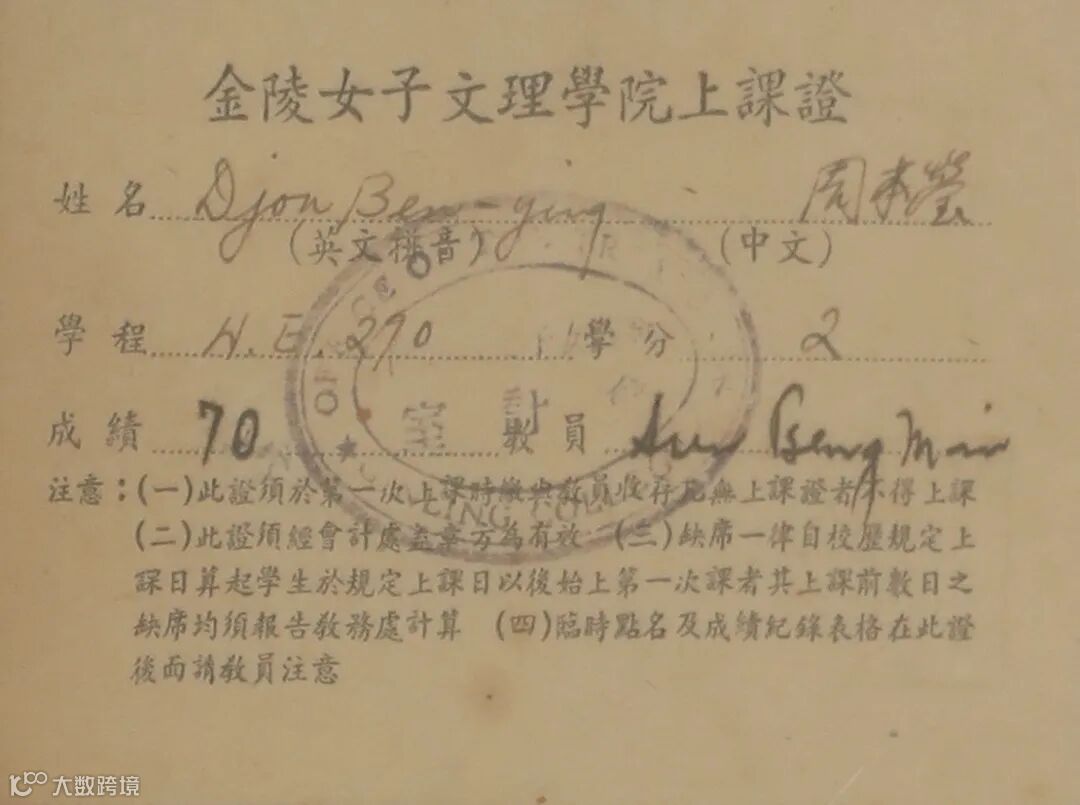 金陵女子文理學院上課證
姓名 Djou Ben-ying 周本瑩
(英文拼音) (中文)
學程 H.E. 270 學分 2
成績 70 教員 Beng Min
注意：(一)此證須於第一次上課時繳與教員收存凡無上課證者不得上課
(二)此證須經會計處蓋章方為有效 (三)缺席一律自校歷規定上
課日算起學生於規定上課日以後始上第一次課者其上課前數日之
缺席均須報告教務處計算 (四)臨時點名及成績紀錄表格在此證
後面請教員注意
室 計
大数跨境